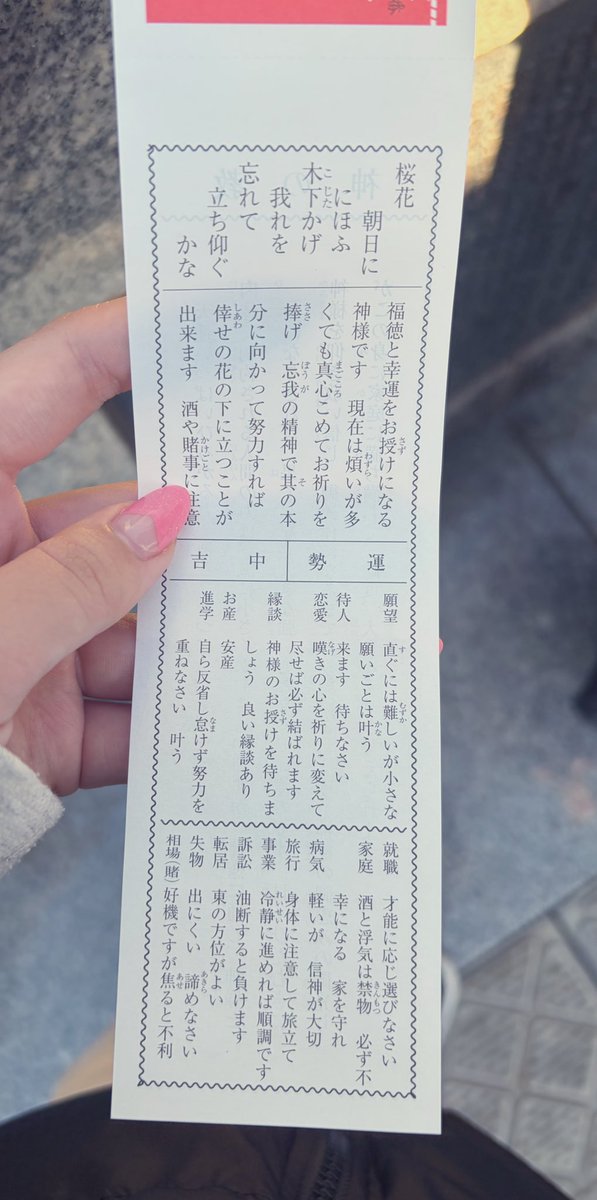 桜花
朝日に
にほふ
木下かげ
我れを
忘れて
立ち仰ぐ
かな
福徳と幸運をお授けになる
神様です 現在は煩いが多
くても真心こめてお祈りを
捧げ 忘我の精神で其の本
分に向かって努力すれば
倖せの花の下に立つことが
出来ます 酒や賭事に注意
運勢 中吉
願望 直ぐには難しいが小さな
願いごとは叶う
待人 来ます 待ちなさい
恋愛 嘆きの心を祈りに変えて
尽せば必ず結ばれます
縁談 神様のお授けを待ちま
しょう 良い縁談あり
お産 安産
進学 自ら反省し怠けず努力を
重ねなさい 叶う
就職 才能に応じ選びなさい
家庭 酒と浮気は禁物 必ず不
幸になる 家を守れ
病気 軽いが 信神が大切
旅行 身体に注意して旅立て
事業 冷静に進めれば順調です
訴訟 油断すると負けます
転居 東の方位がよい
失物 出にくい 諦めなさい
相場(賭) 好機ですが焦ると不利